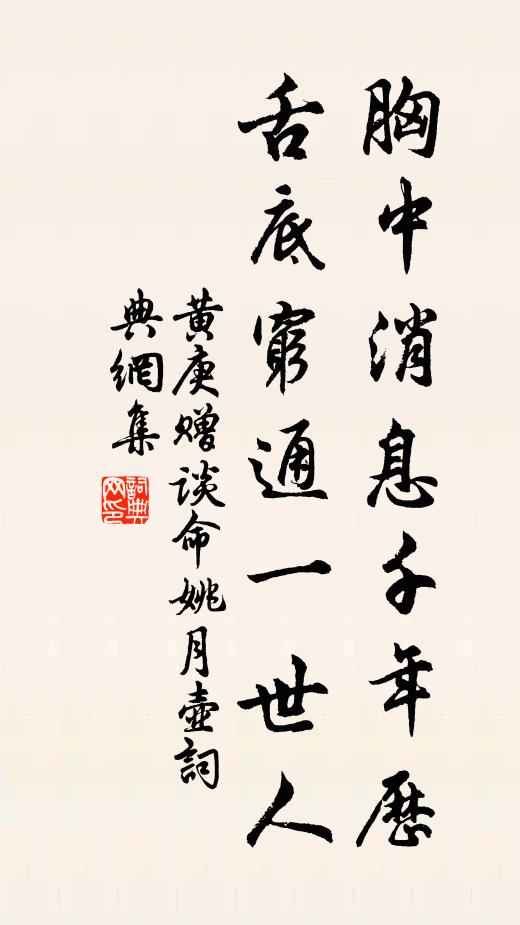 胸中消息千年歷
舌底窮通一世人
黃庚贈談命姚月壺詞
典網集
詞典
网印